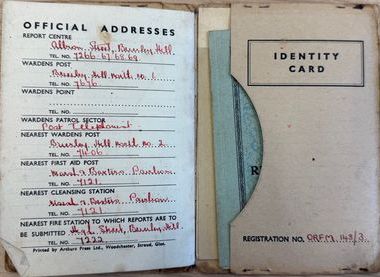 OFFICIAL ADDRESSES
REPORT CENTRE
Albion Street, Brierley Hill
TEL. NO. 7266. 67. 68. 69
WARDENS POST
Brierley Hill North No. 1.
TEL. NO. 7676
WARDENS POINT
TEL. NO.
WARDENS PATROL SECTOR
Post Telephonist
NEAREST WARDENS POST
Brierley Hill North No. 2.
TEL. NO. 7606
NEAREST FIRST AID POST
Marsh & Baxters Pavilion
TEL. NO. 7121.
NEAREST CLEANSING STATION
Marsh & Baxters Pavilion
TEL. NO. 7121
NEAREST FIRE STATION TO WHICH REPORTS ARE TO
BE SUBMITTED High Street, Brierley Hill.
TEL. NO. 7222
Printed by Arthurs Press Ltd., Woodchester, Stroud, Glos.
IDENTITY
CARD
R
REGISTRATION NO.